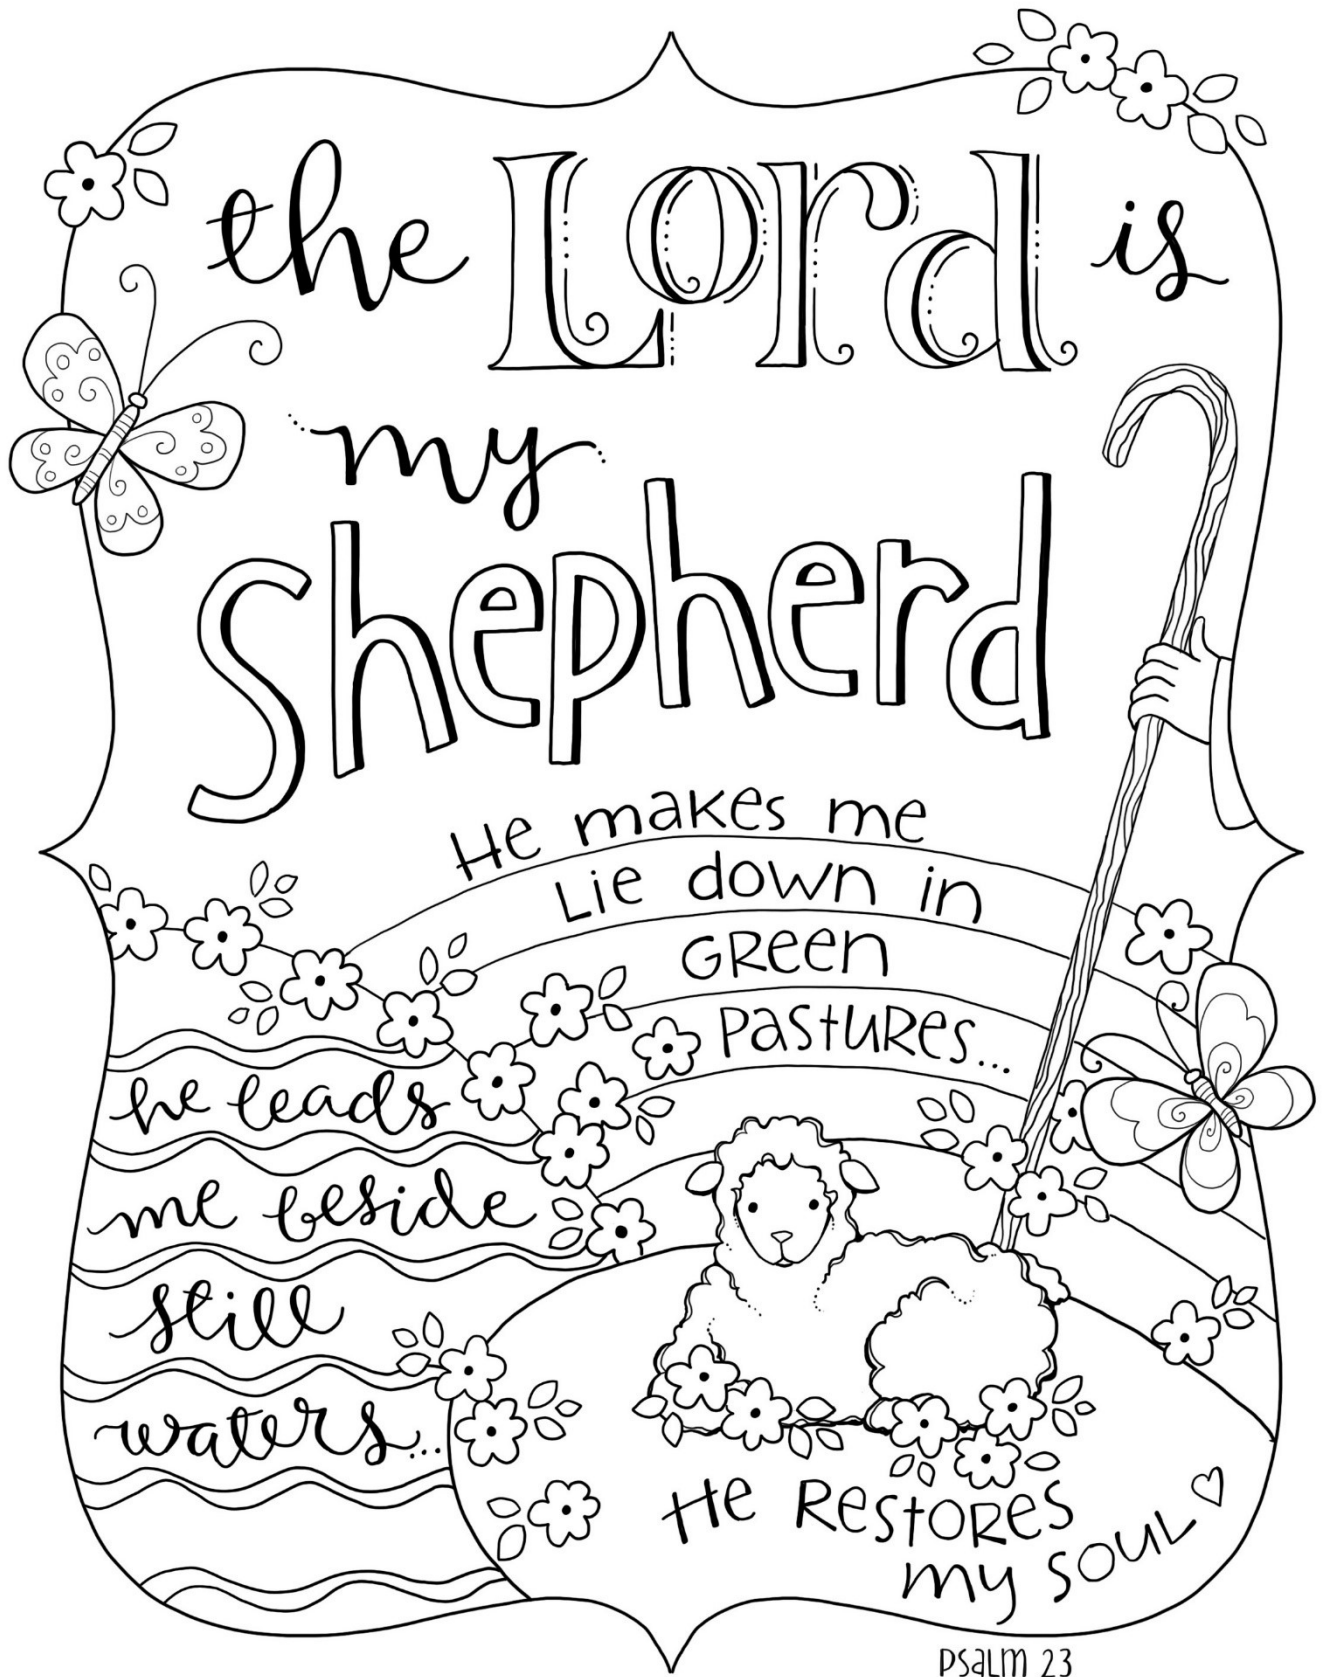 the Lord is
my
Shepherd
He makes me
Lie down in
GReen
PastuRes...
he leads
me beside
still
waters...
He RestoRes
my soul
PSaLm 23